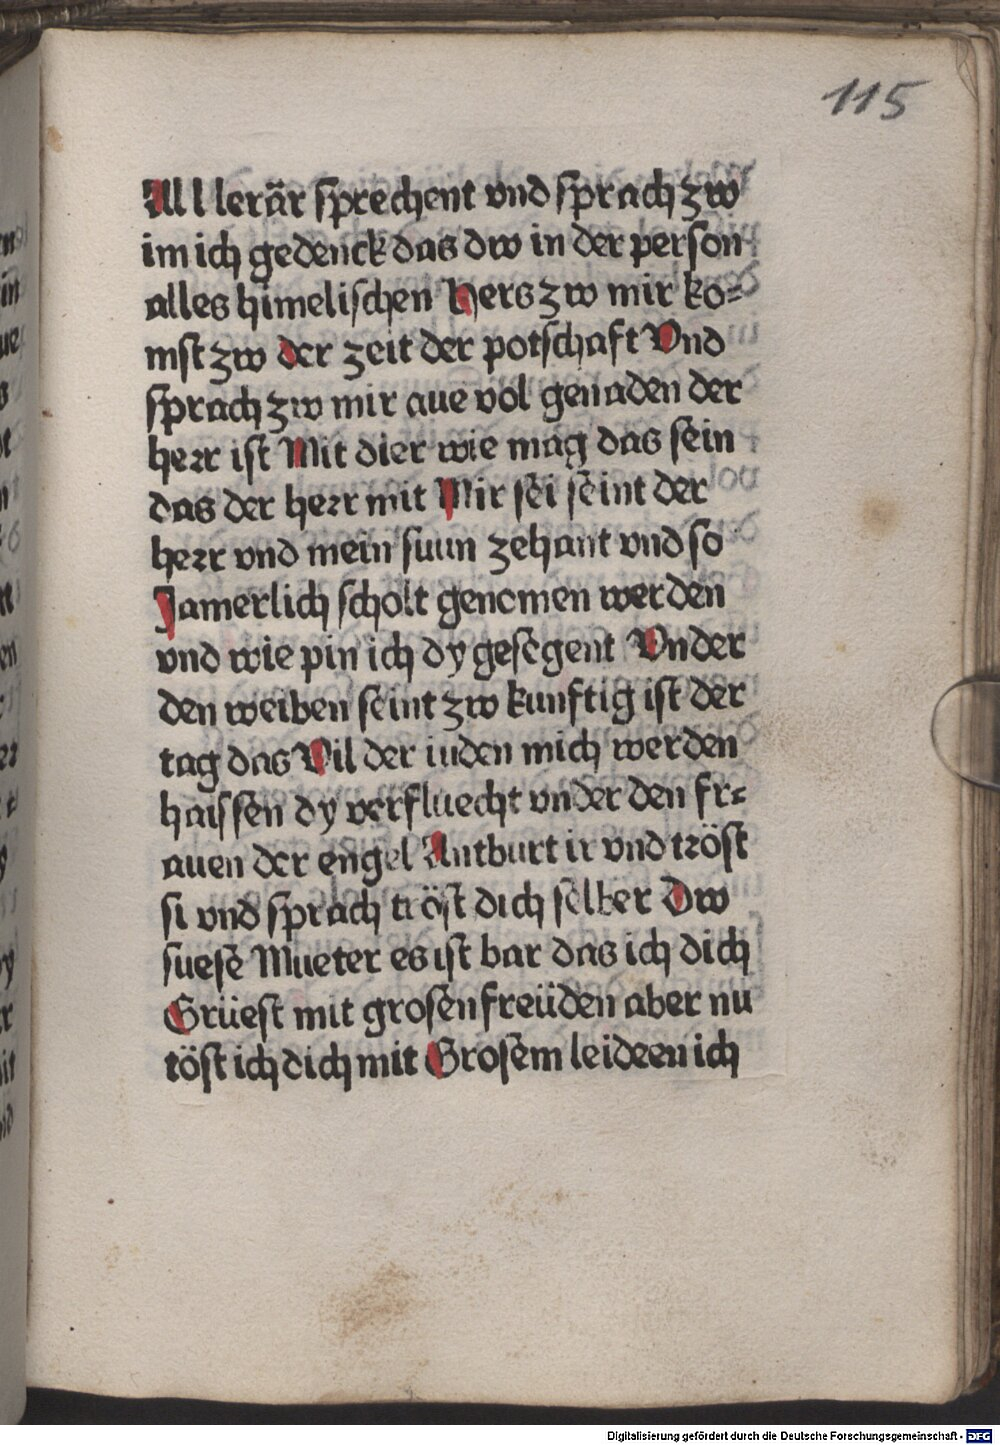 115
All lerär sprechent vnd sprach zw
im ich gedenck das dw in der person
alles himelischen Hers zw mir ko=
mst zw der zeit der potschaft Vnd
sprach zw mir aue vol genaden der
herr ist Mit dier wie mag das sein
das der herr mit Mir sei seint der
herr vnd mein suun zehant vnd so
Jamerlich scholt genomen werden
vnd wie pin ich dy gesegent Vnder
den weiben seint zw kunftig ist der
tag das Vil der iuden mich werden
haissen dy verfluecht vnder den fr=
auen der engel Antburt ir vnd tröst
si vnd sprach tröst dich selber Dw
suese Mueter es ist bar das ich dich
Grüest mit grosen freüden aber nu
töst ich dich mit Grosem leideen ich
Digitalisierung gefördert durch die Deutsche Forschungsgemeinschaft - DFG